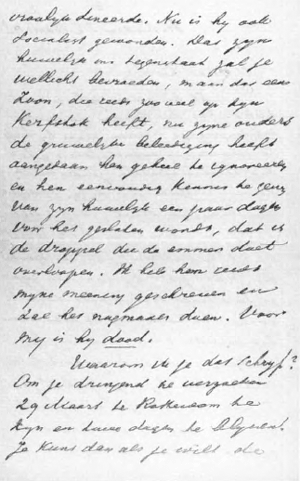 vrouwlijk dineerde. Nu is hij ook
Socialist geworden. Dat zijn
huwelijk ons tegenstaat zal je
wellicht bevroeden, maar dat een
Zoon, die reeds zooveel op zijn
Kerfstok heeft, nu zijne ouders
de gruwelijke beleediging heeft
aangedaan hen geheel te ignoreeren
en hen eenvoudig kennis te geven
van zijn huwelijk een paar dagen
vóór het gesloten wordt, dat is
de droppel die de emmer doet
overloopen. Ik heb hem reeds
mijne meening geschreven en
zal het nogmaals doen. Voor
mij is hij dood.
Waarom ik je dat schrijf?
Om je dringend te verzoeken
29 Maart te Rotterdam te
zijn en twee dagen te blijven!
Je kunt dan als je wilt, de